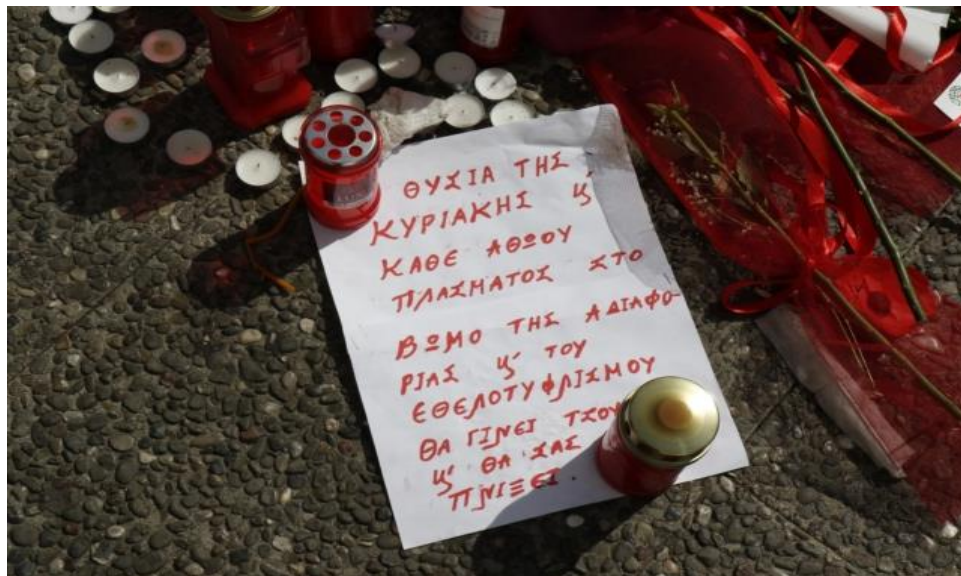 ΘΥΣΙΑ ΤΗΣ
ΚΥΡΙΑΚΗΣ ϗ
ΚΑΘΕ ΑΘΩΟΥ
ΠΛΑΣΜΑΤΟΣ ΣΤΟ
ΒΩΜΟ ΤΗΣ ΑΔΙΑΦΟ-
ΡΙΑΣ ϗ ΤΟΥ
ΕΘΕΛΟΤΥΦΛΙΣΜΟΥ
ΘΑ ΓΙΝΕΙ
ϗ ΘΑ ΣΑΣ
ΠΝΙΞΕΙ.